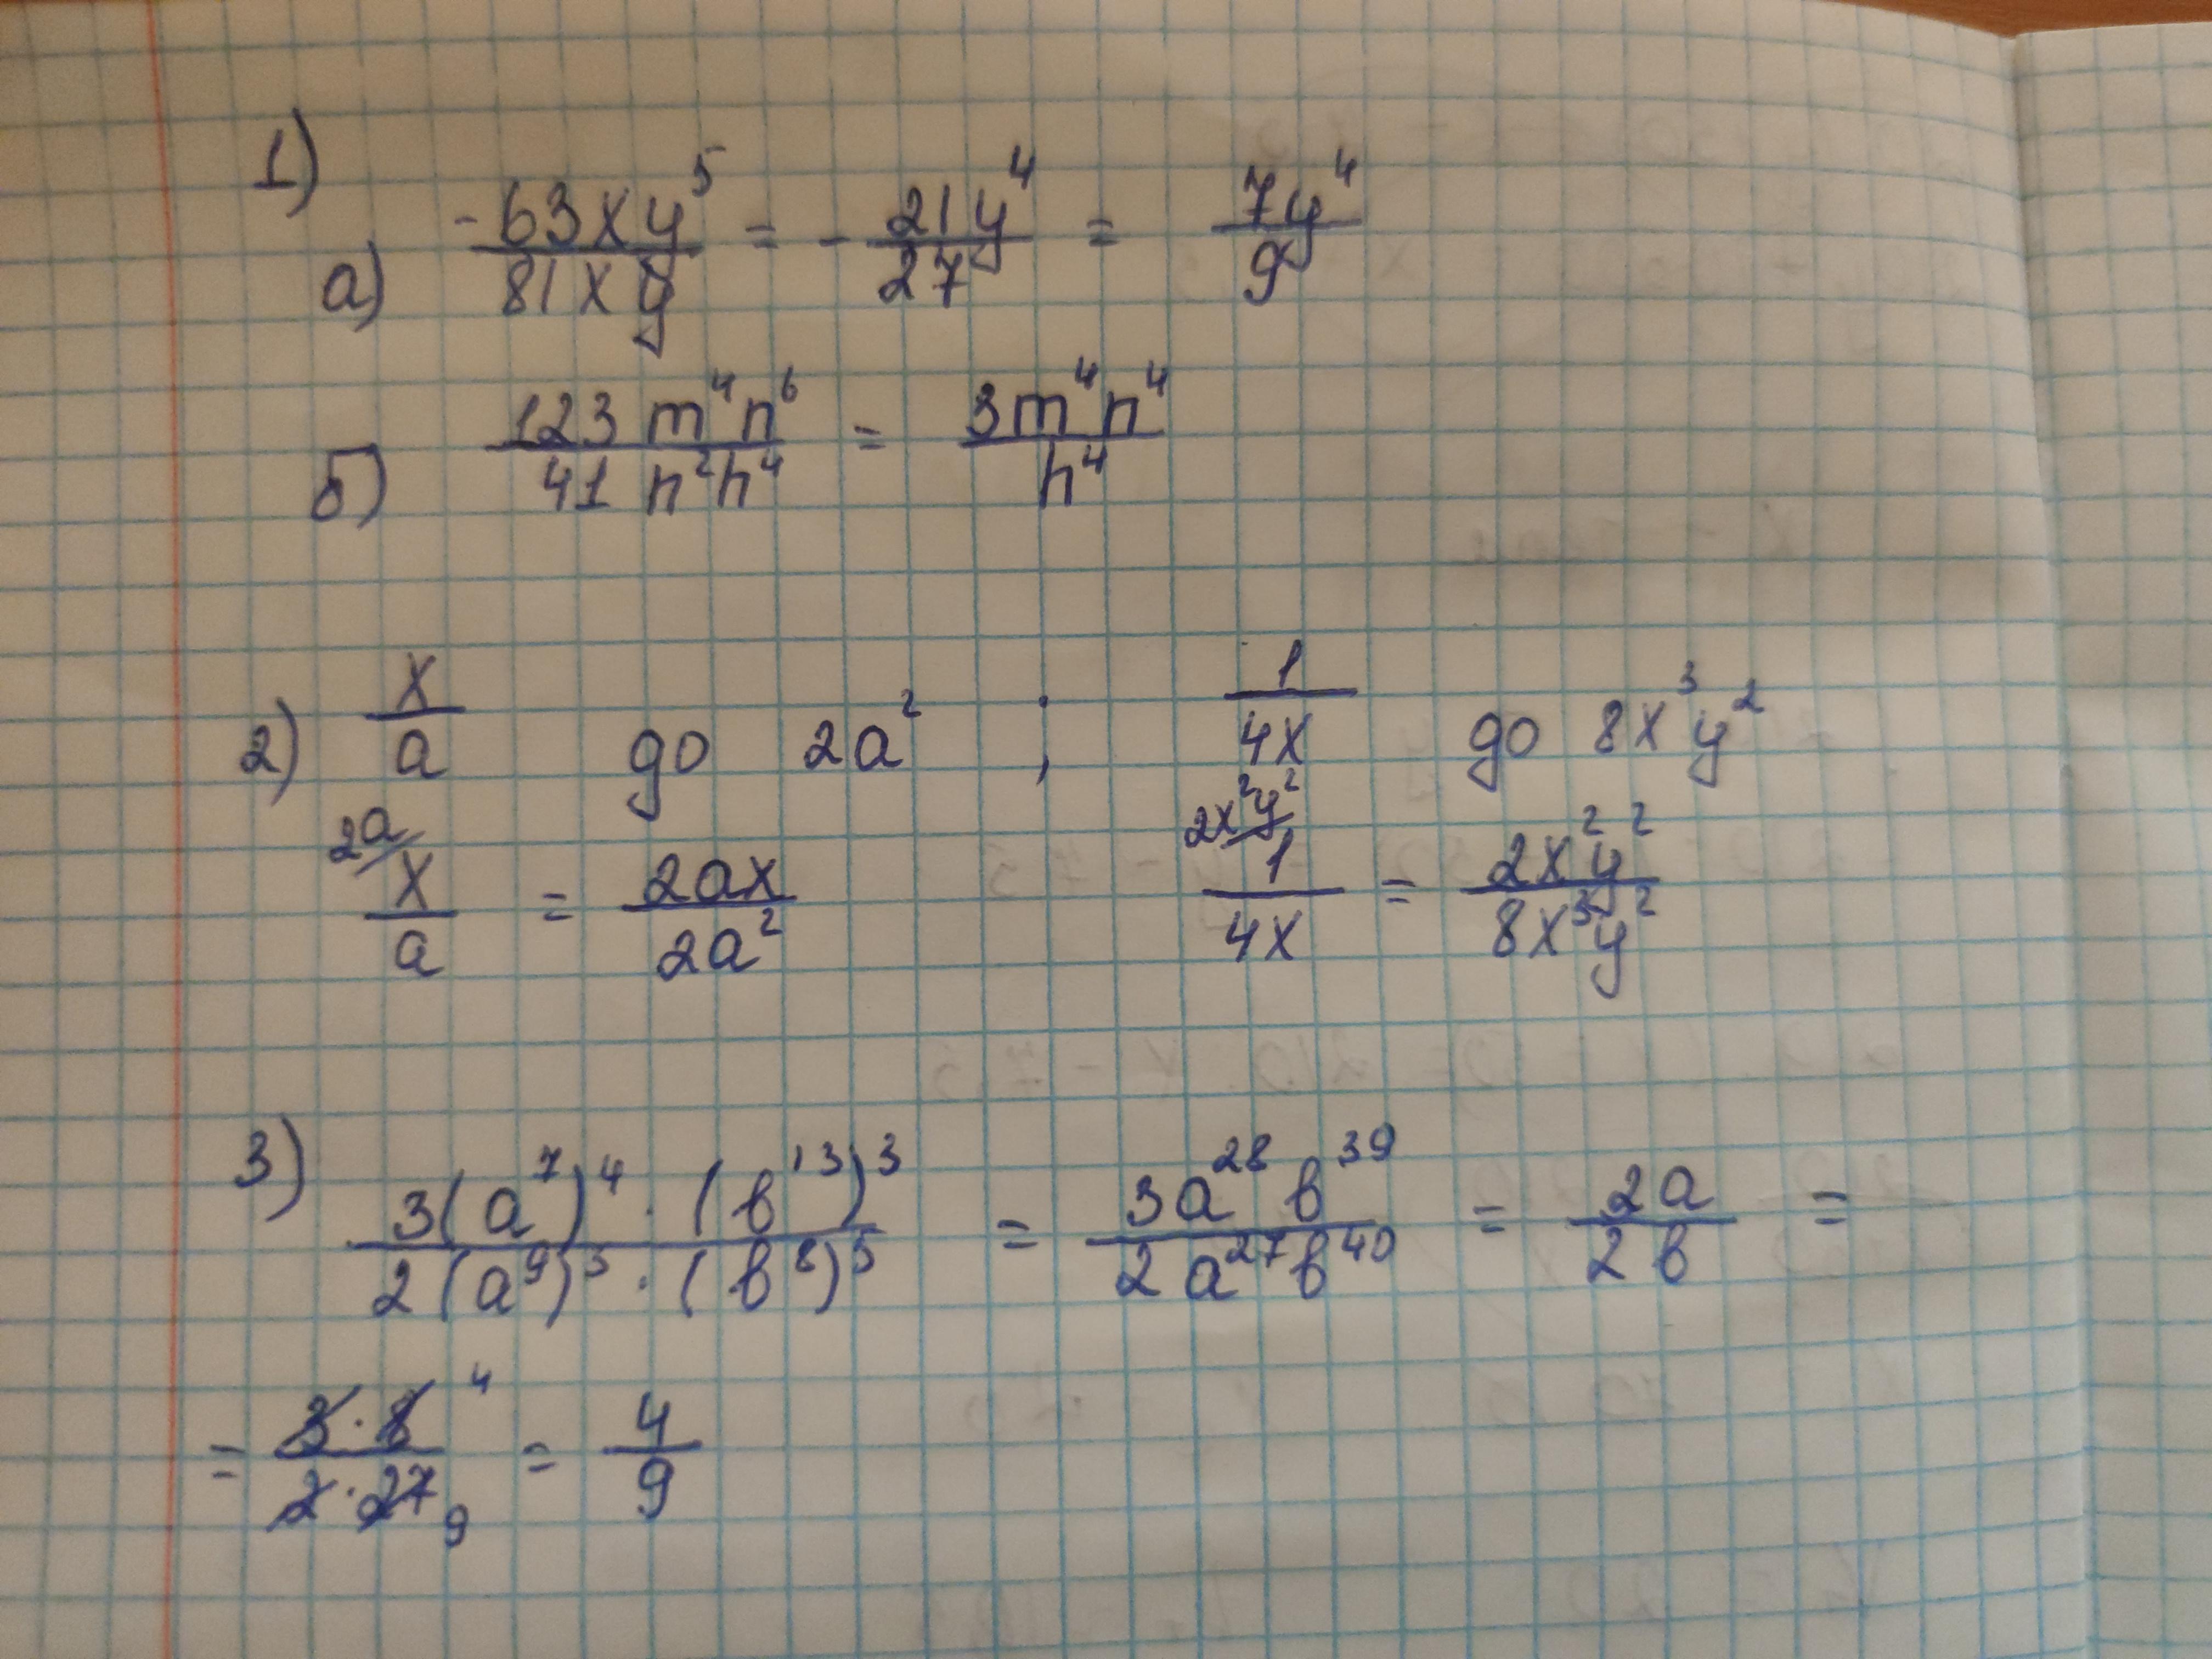 1)
а) -63xy⁵/81xy = -21y⁴/27 = 7y⁴/9
б) 123m⁴n⁶/41n²h⁴ = 3m⁴n⁴/h⁴
2) x/a до 2a² ; 1/4x до 8x³y²
2a/ x/a = 2ax/2a² 2x²y²/ 1/4x = 2x²y²/8x³y²
3) 3(a⁷)⁴·(b¹³)³/2(a⁹)³·(b⁸)⁵ = 3a²⁸b³⁹/2a²⁷b⁴⁰ = 2a/2b =
= 3·8 4/2·27 9 = 4/9